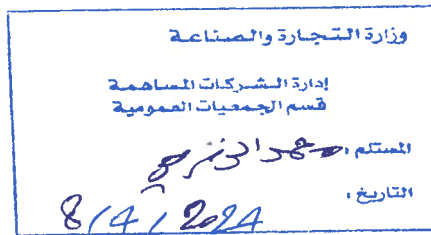 وزارة التجارة والصناعة
إدارة الشركات المساهمة
قسم الجمعيات العمومية
المستلم : محمد
التاريخ :
8/4/2024